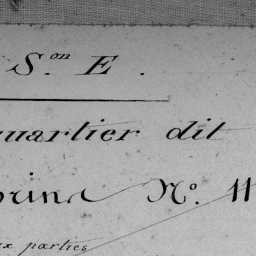 S.on E.
quartier dit
N.o 11
ux parties